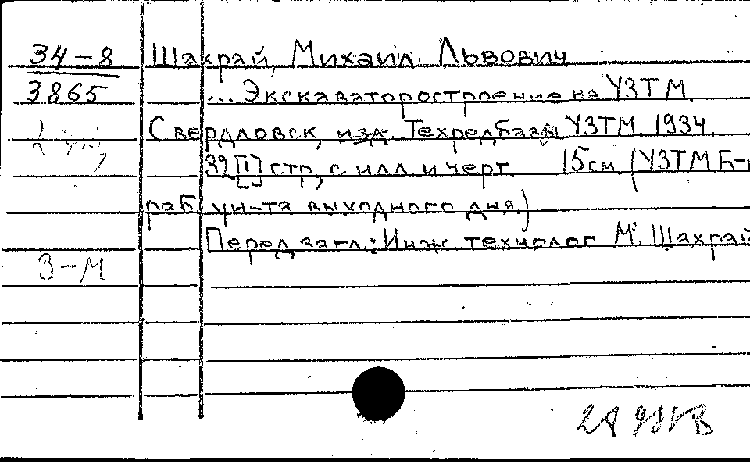 34-8
3865
Шахрай, Михаил Львович
... Экскаваторостроение на УЗТМ.
Свердловск, изд. Техредбазы УЗТМ. 1934.
39[1] стр., с илл. и черт. 15 см. (УЗТМ Б-
раб. ун-та выходного дня.)
Перед загл.: Инж. технолог М. Шахрай
3-М